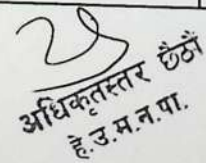 अधिकृतस्तर छैठौं
हे.उ.म.न.पा.